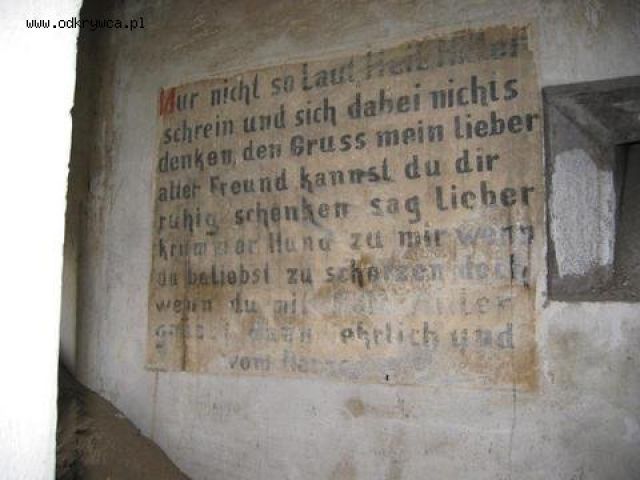 www.odkrywca.pl
Nur nicht so laut Heil Hitler
schrein und sich dabei nichts
denken, den Gruss mein lieber
alter Freund kannst du dir
ruhig schenken sag lieber
krummer Hund zu mir wenn
du beliebst zu scherzen doch
wenn du mit Heil Hitler
dann ehrlich und
vom